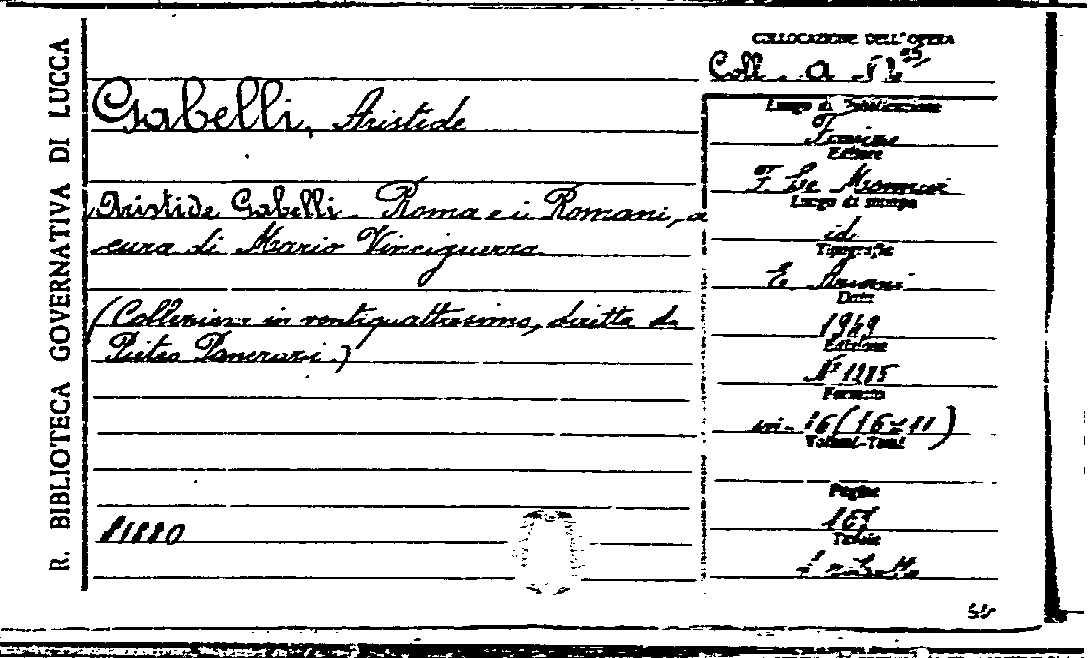 R. BIBLIOTECA GOVERNATIVA DI LUCCA
COLLOCAZIONE DELL'OPERA
Coll. a
Gabelli, Aristide
Aristide Gabelli - Roma e i Romani, a
cura di Mario Vinciguerra
(Collezione in ventiquattresimo, diretta da
Pietro Pancrazi.)
81880
Luogo di Pubblicazione
Firenze
Editore
F. Le Monnier
Luogo di stampa
id.
Tipografia
E. Ariani
Data
1949
Edizione
N° 1285
Formato
in-16 (16x11)
Volumi-Tomi
Pagine
167
Tavole